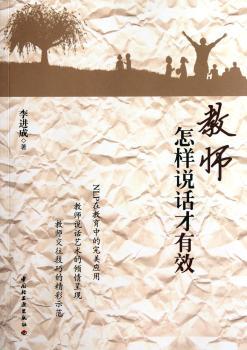 教师
怎样说话才有效
李进成 著
NLP在教育中的完美应用
教师说话艺术的倾情呈现
教师交往技巧的精彩示范
中国轻工业出版社